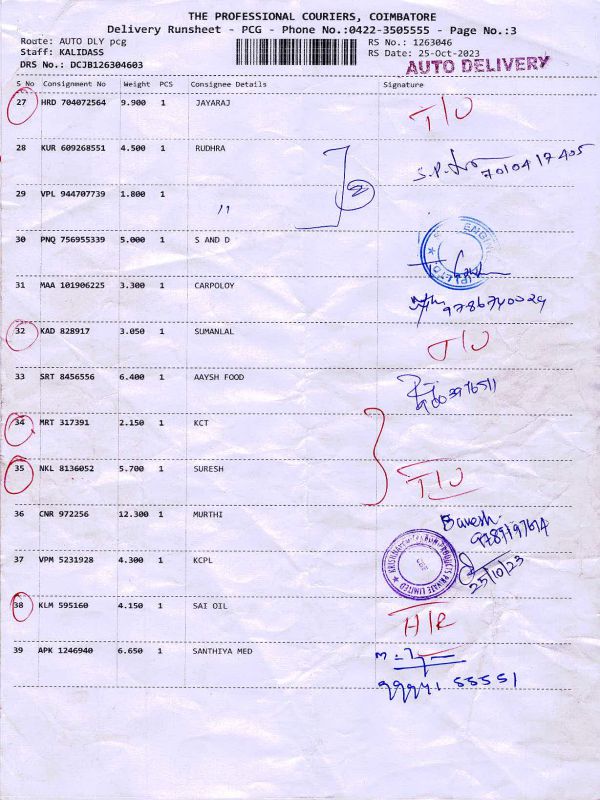 THE PROFESSIONAL COURIERS, COIMBATORE
Delivery Runsheet - PCG - Phone No.:0422-3505555 - Page No.:3
Route: AUTO DLY pcg RS No.: 1263046
Staff: KALIDASS RS Date: 25-Oct-2023
DRS No.: DCJB126304603 AUTO DELIVERY
S No Consignment No Weight PCS Consignee Details Signature
27 HRD 704072564 9.900 1 JAYARAJ T/U
28 KUR 609268551 4.500 1 RUDHRA 7010417405
29 VPL 944707739 1.800 1 11 2
30 PNQ 756955339 5.000 1 S AND D
31 MAA 101906225 3.300 1 CARPOLOY 9786740024
32 KAD 828917 3.050 1 SUMANLAL T/U
33 SRT 8456556 6.400 1 AAYSH FOOD
34 MRT 317391 2.150 1 KCT
35 NKL 8136052 5.700 1 SURESH T/U
36 CNR 972256 12.300 1 MURTHI
37 VPM 5231928 4.300 1 KCPL 25/10/23
38 KLM 595160 4.150 1 SAI OIL H/R
39 APK 1246940 6.650 1 SANTHIYA MED
99941 55551